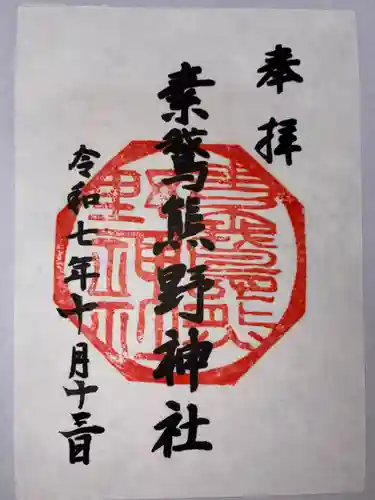 奉拝
素鵞熊野神社
令和七年十月十三日